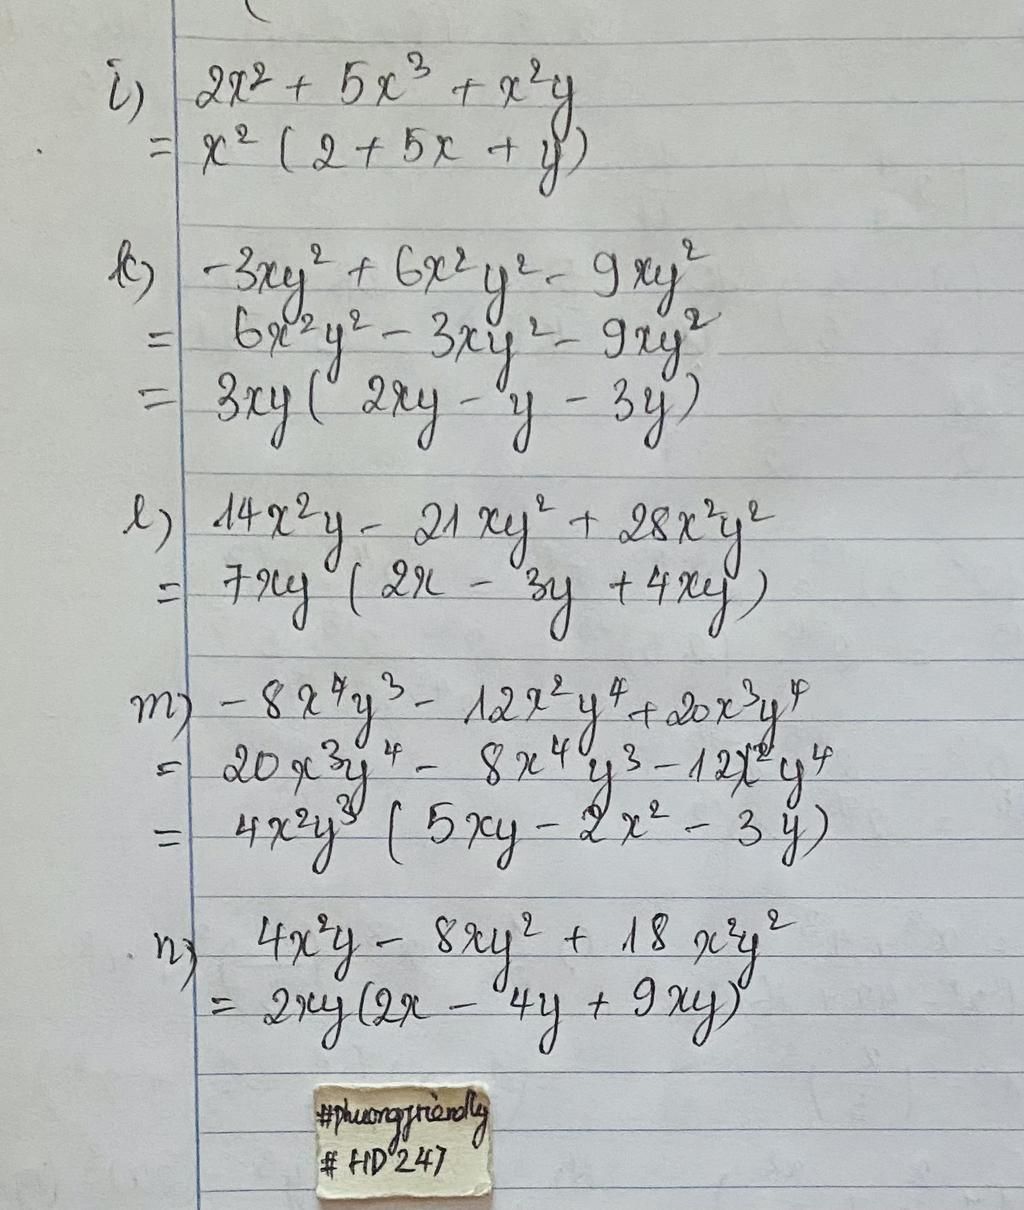 i) 2x² + 5x³ + x²y
= x² (2 + 5x + y)
k) -3xy² + 6x²y² - 9xy²
= 6x²y² - 3xy² - 9xy²
= 3xy( 2xy - y - 3y)
l) 14x²y - 21xy² + 28x²y²
= 7xy (2x - 3y + 4xy)
m) -8x⁴y³ - 12x²y⁴ + 20x³y⁴
= 20x³y⁴ - 8x⁴y³ - 12x²y⁴
= 4x²y³ (5xy - 2x² - 3y)
n) 4x²y - 8xy² + 18x²y²
= 2xy(2x - 4y + 9xy)
#phuongfriendly
# HD 247